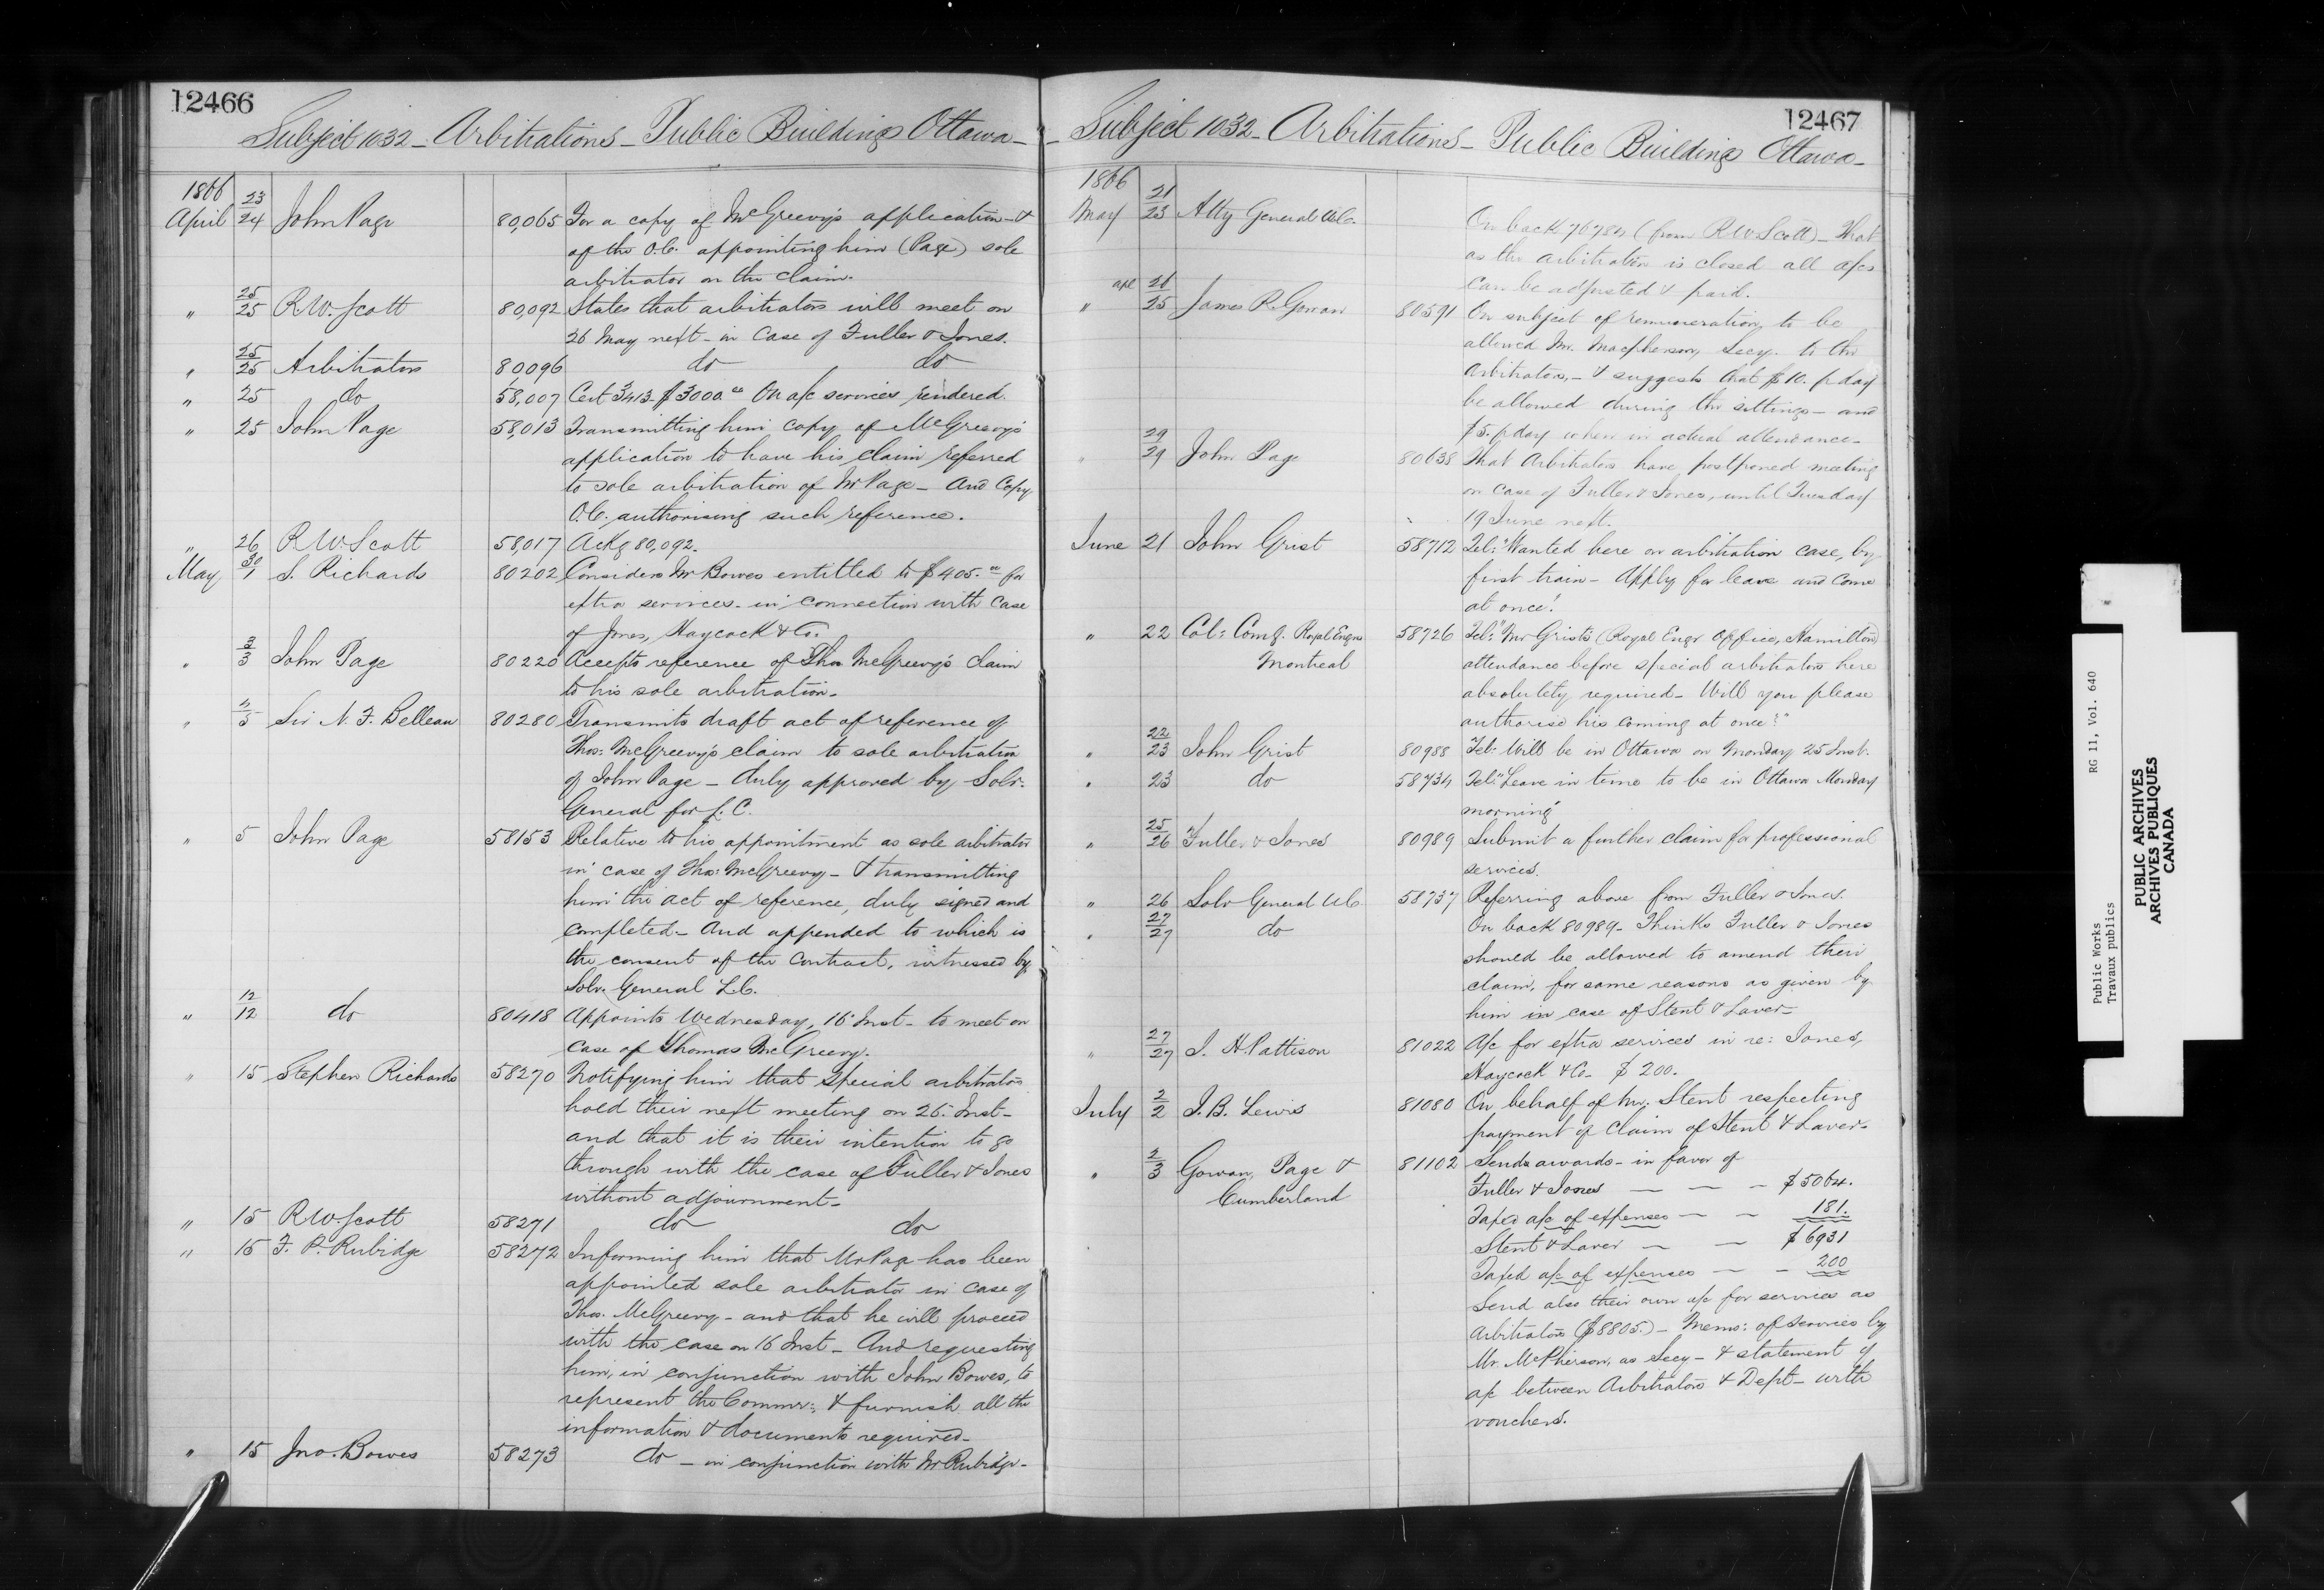 12466
Subject 1032 - Arbitrations - Public Buildings Ottawa -
1866
April 23/24 John Page 80,065 For a copy of McGreevy's application - &
of the O.C. appointing him (Page) sole
arbitrator on the claim.
" 25/25 R.W. Scott 80,092 States that arbitrators will meet on
26 May next - in case of Fuller & Jones.
" 25/25 Arbitrators 80096 do do
" 25 do 58,007 Cert 3413 - $3000.00 On a/c services rendered.
" 25 John Page 58,013 Transmitting him copy of McGreevy's
application to have his claim referred
to sole arbitration of Mr Page - And Copy
O.C. authorising such reference.
" 26 R.W. Scott 58,017 Ackg 80,092.
May 30/1 S. Richards 80202 Considers Mr Bowes entitled to $405.00 for
extra services in connection with case
of Jones, Haycock & Co.
" 3/3 John Page 80220 Accepts reference of Thos McGreevy's claim
to his sole arbitration -
" 4/5 Sir N. F. Belleau 80280 Transmits draft act of reference of
Thos: McGreevy's claim to sole arbitration
of John Page - duly approved by Solr:
General for L.C.
" 5 John Page 58153 Relative to his appointment as sole arbitrator
in case of Thos: McGreevy - & transmitting
him the act of reference, duly signed and
completed - And appended to which is
the consent of the Contract. witnessed by
Solr. General L.C.
" 12/12 do 80418 Appoints Wednesday, 16 Inst - to meet on
case of Thomas McGreevy.
" 15 Stephen Richards 58270 Notifying him that Special arbitrators
hold their next meeting on 26 Inst -
and that it is their intention to go
through with the case of Fuller & Jones
without adjournment -
" 15 R.W. Scott 58271 do do
" 15 F. P. Rubidge 58272 Informing him that Mr Page has been
appointed sole arbitrator in case of
Thos. McGreevy - and that he will proceed
with the case on 16 Inst - And requesting
him, in conjunction with John Bowes, to
represent the Commr:, & furnish all the
information & documents required -
" 15 Jno. Bowes 58273 do - in conjunction with Mr Rubidge -
12467
Subject 1032 - Arbitrations - Public Buildings Ottawa -
1866
May 21/23 Atty General U.C. On back (from R W Scott) - That
as the arbitration is closed all a/cs
can be adjusted & paid.
" apl 21/25 James R. Gowan 80591 On subject of remuneration to be
allowed Mr. Macpherson, Secy. to the
Arbitrators, - & suggests that $10. p day
be allowed during the sittings - and
$5. p day when in actual attendance -
" 29/29 John Page 80638 That Arbitrators have postponed meeting
on case of Fuller & Jones, until Tuesday
19 June next.
June 21 John Grist 58712 Tel: "Wanted here on arbitration case, by
first train - Apply for leave and come
at once".
" 22 Col: Comg. Royal Engrs 58726 Tel: "Mr Grist's (Royal Engr Office, Hamilton)
Montreal attendance before special arbitrators here
absolutely required - Will you please
authorise his coming at once?"
" 22/23 John Grist 80988 Tel: Will be in Ottawa on Monday 25 Inst.
" 23 do 58734 Tel: "Leave in time to be in Ottawa Monday
morning"
" 25/26 Fuller & Jones 80989 Submit a further claim for professional
services.
" 26 Solr General U.C. 58737 Referring above from Fuller & Jones.
" 27/27 do On back 80989 - Thinks Fuller & Jones
should be allowed to amend their
claim, for same reasons as given by
him in case of Stent & Laver -
" 27/27 J. H. Pattison 81022 A/c for extra services in re: Jones,
Haycock & Co - $200.
July 2/2 J. B. Lewis 81080 On behalf of Mr. Stent respecting
payment of claim of Stent & Laver -
" 2/3 Gowan, Page & 81102 Sends awards - in favor of
Cumberland Fuller & Jones - - - $5064.
Taxed a/c of expenses - - 181.
Stent & Laver - - $6931
Taxed a/c of expenses - - 200
Send also their own a/c for services as
Arbitrators ($8805.) - Memo: of services by
Mr. McPherson, as Secy - & statement of
a/c between Arbitrators & Dept - with
vouchers.
Public Works RG 11, Vol. 640
Travaux publics
PUBLIC ARCHIVES
ARCHIVES PUBLIQUES
CANADA